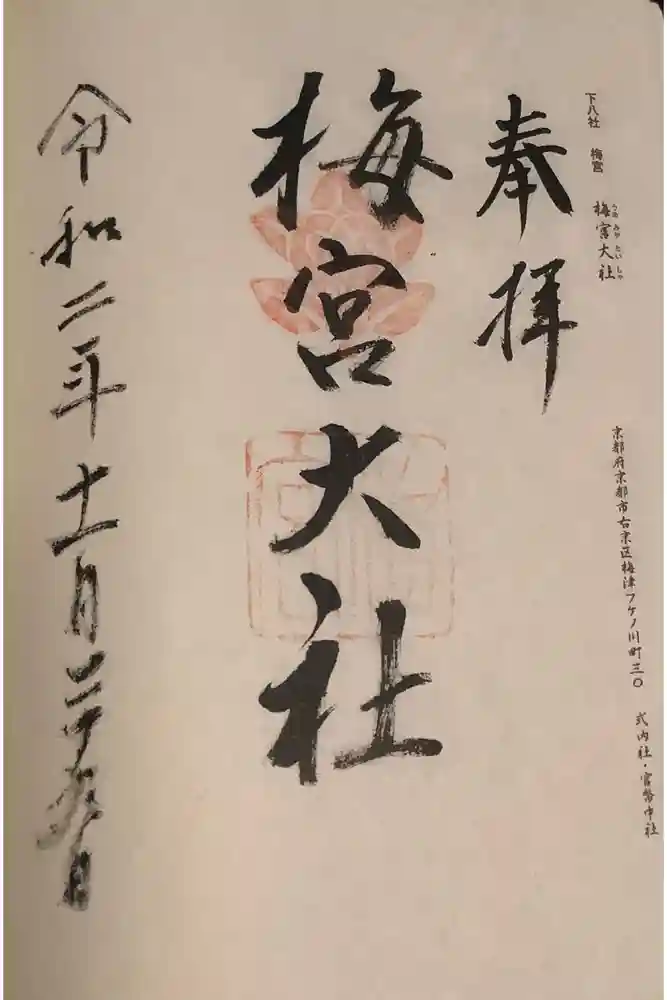 下八社 梅宮 梅宮大社
うめみやたいしゃ
京都府京都市右京区梅津フケノ川町三〇
式内社・官幣中社
奉拝
梅宮大社
令和二年十一月二十九日